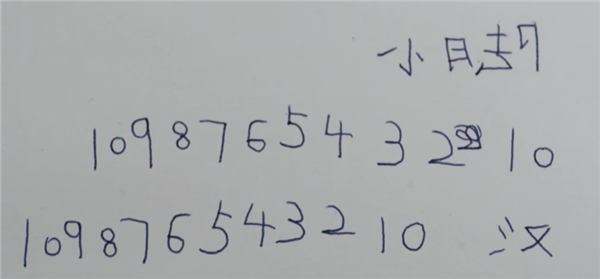 小日
1098765432 10
109876543210 汉